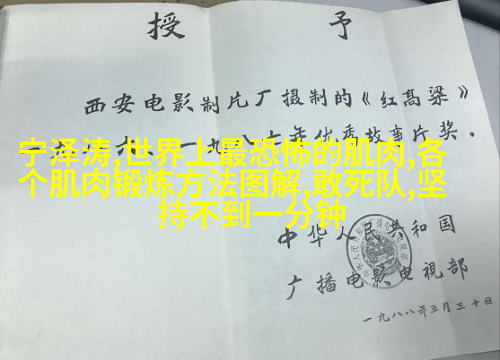 授予
西安电影制片厂摄制的《红高粱》
一九八六、一九八七年优秀故事片奖。
宁泽涛,世界上最恐怖的肌肉,各
个肌肉锻炼方法图解,敢死队,坚
持不到一分钟
中华人民共和国
广播电影电视部
一九八八年三月三十日